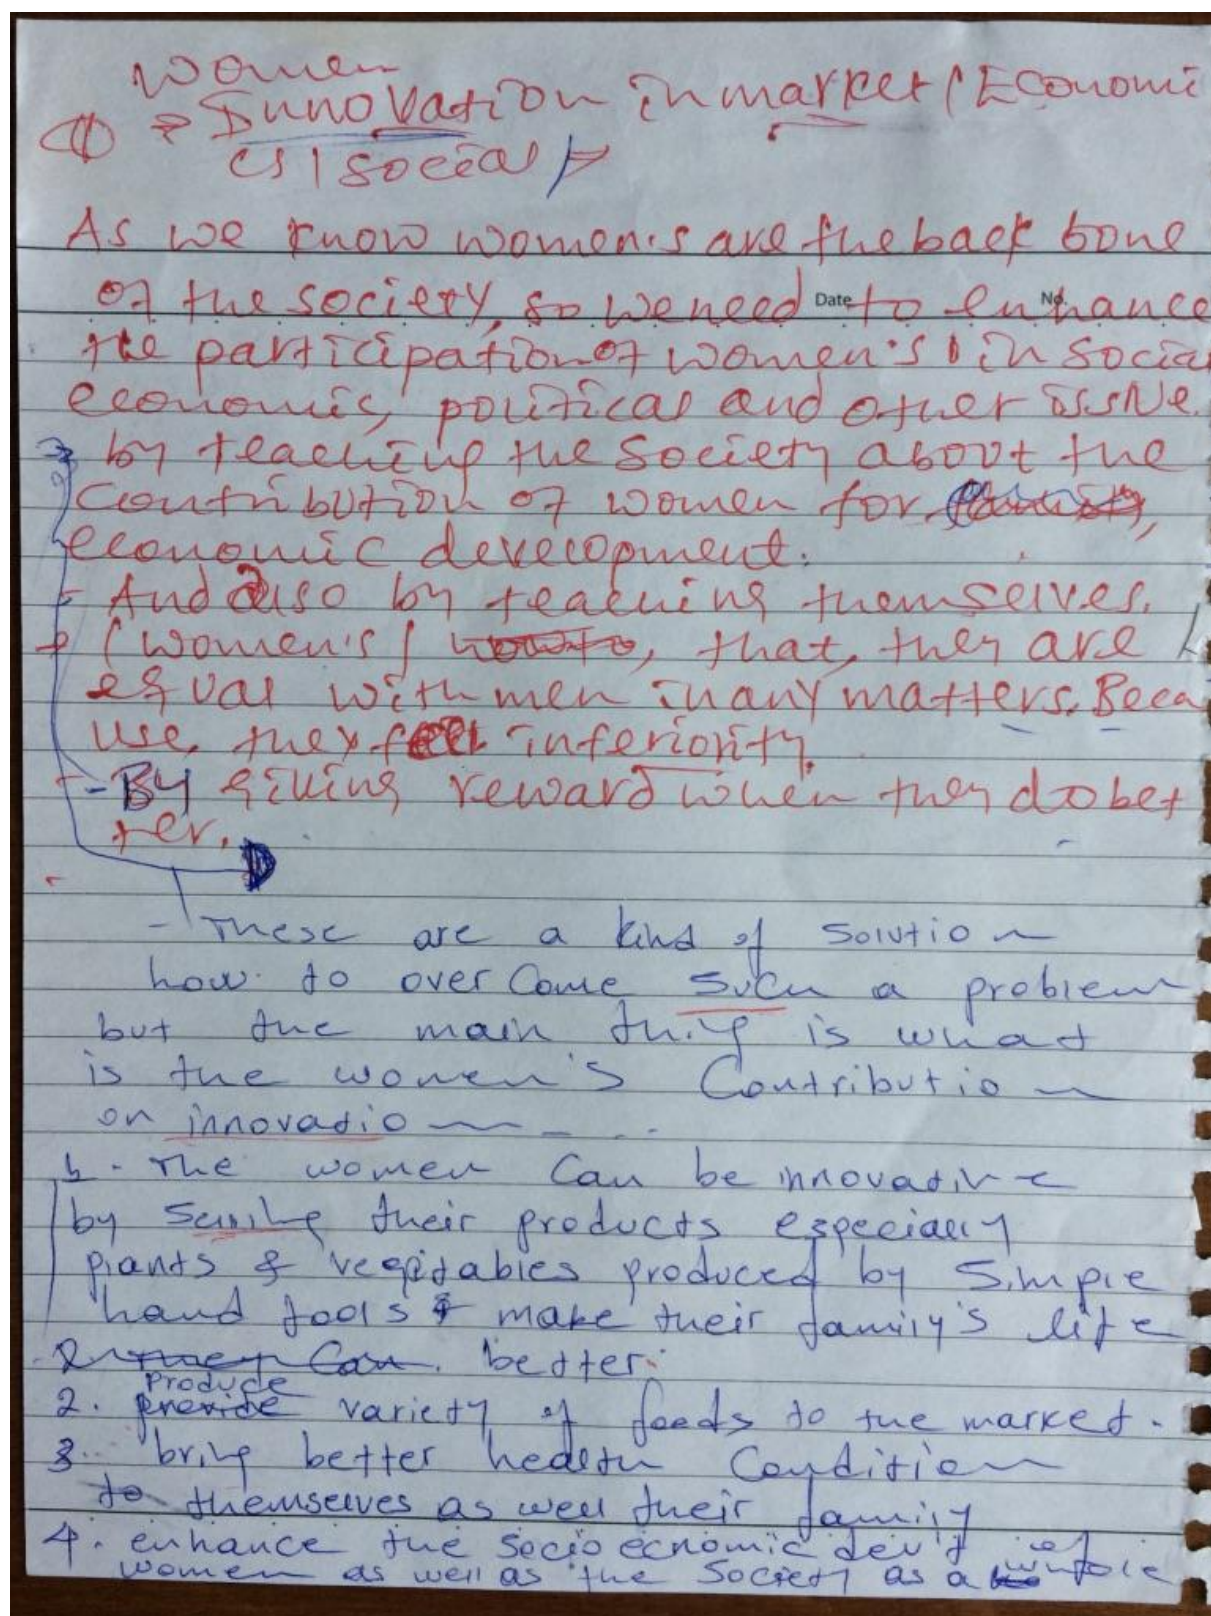 Women
① ⇒ Innovation in market / Economi
cs / social /
As we know women's are the back bone
of the society, so we need Date to enhance No.
the participation of women's in social
economic, political and other issue.
by teaching the society about the
contribution of women for
economic development.
- And also by teaching themselves.
(women's) how to, that, they are
equal with men in any matters. Beca
use, they feel inferiority.
- By giving reward when they do bet
ter.
- These are a kind of solution
how to over come such a problem
but the main thing is what
is the women's contribution
on innovation - - ..
1. The women can be innovative
by selling their products especially
plants & vegitables produced by simple
hand tools & make their family's life
2 they can. better.
produce
2. provide variety of foods to the market.
3. bring better health condition
to themselves as well their family
4. enhance the socio ecnomic dev't of
women as well as the society as a whole